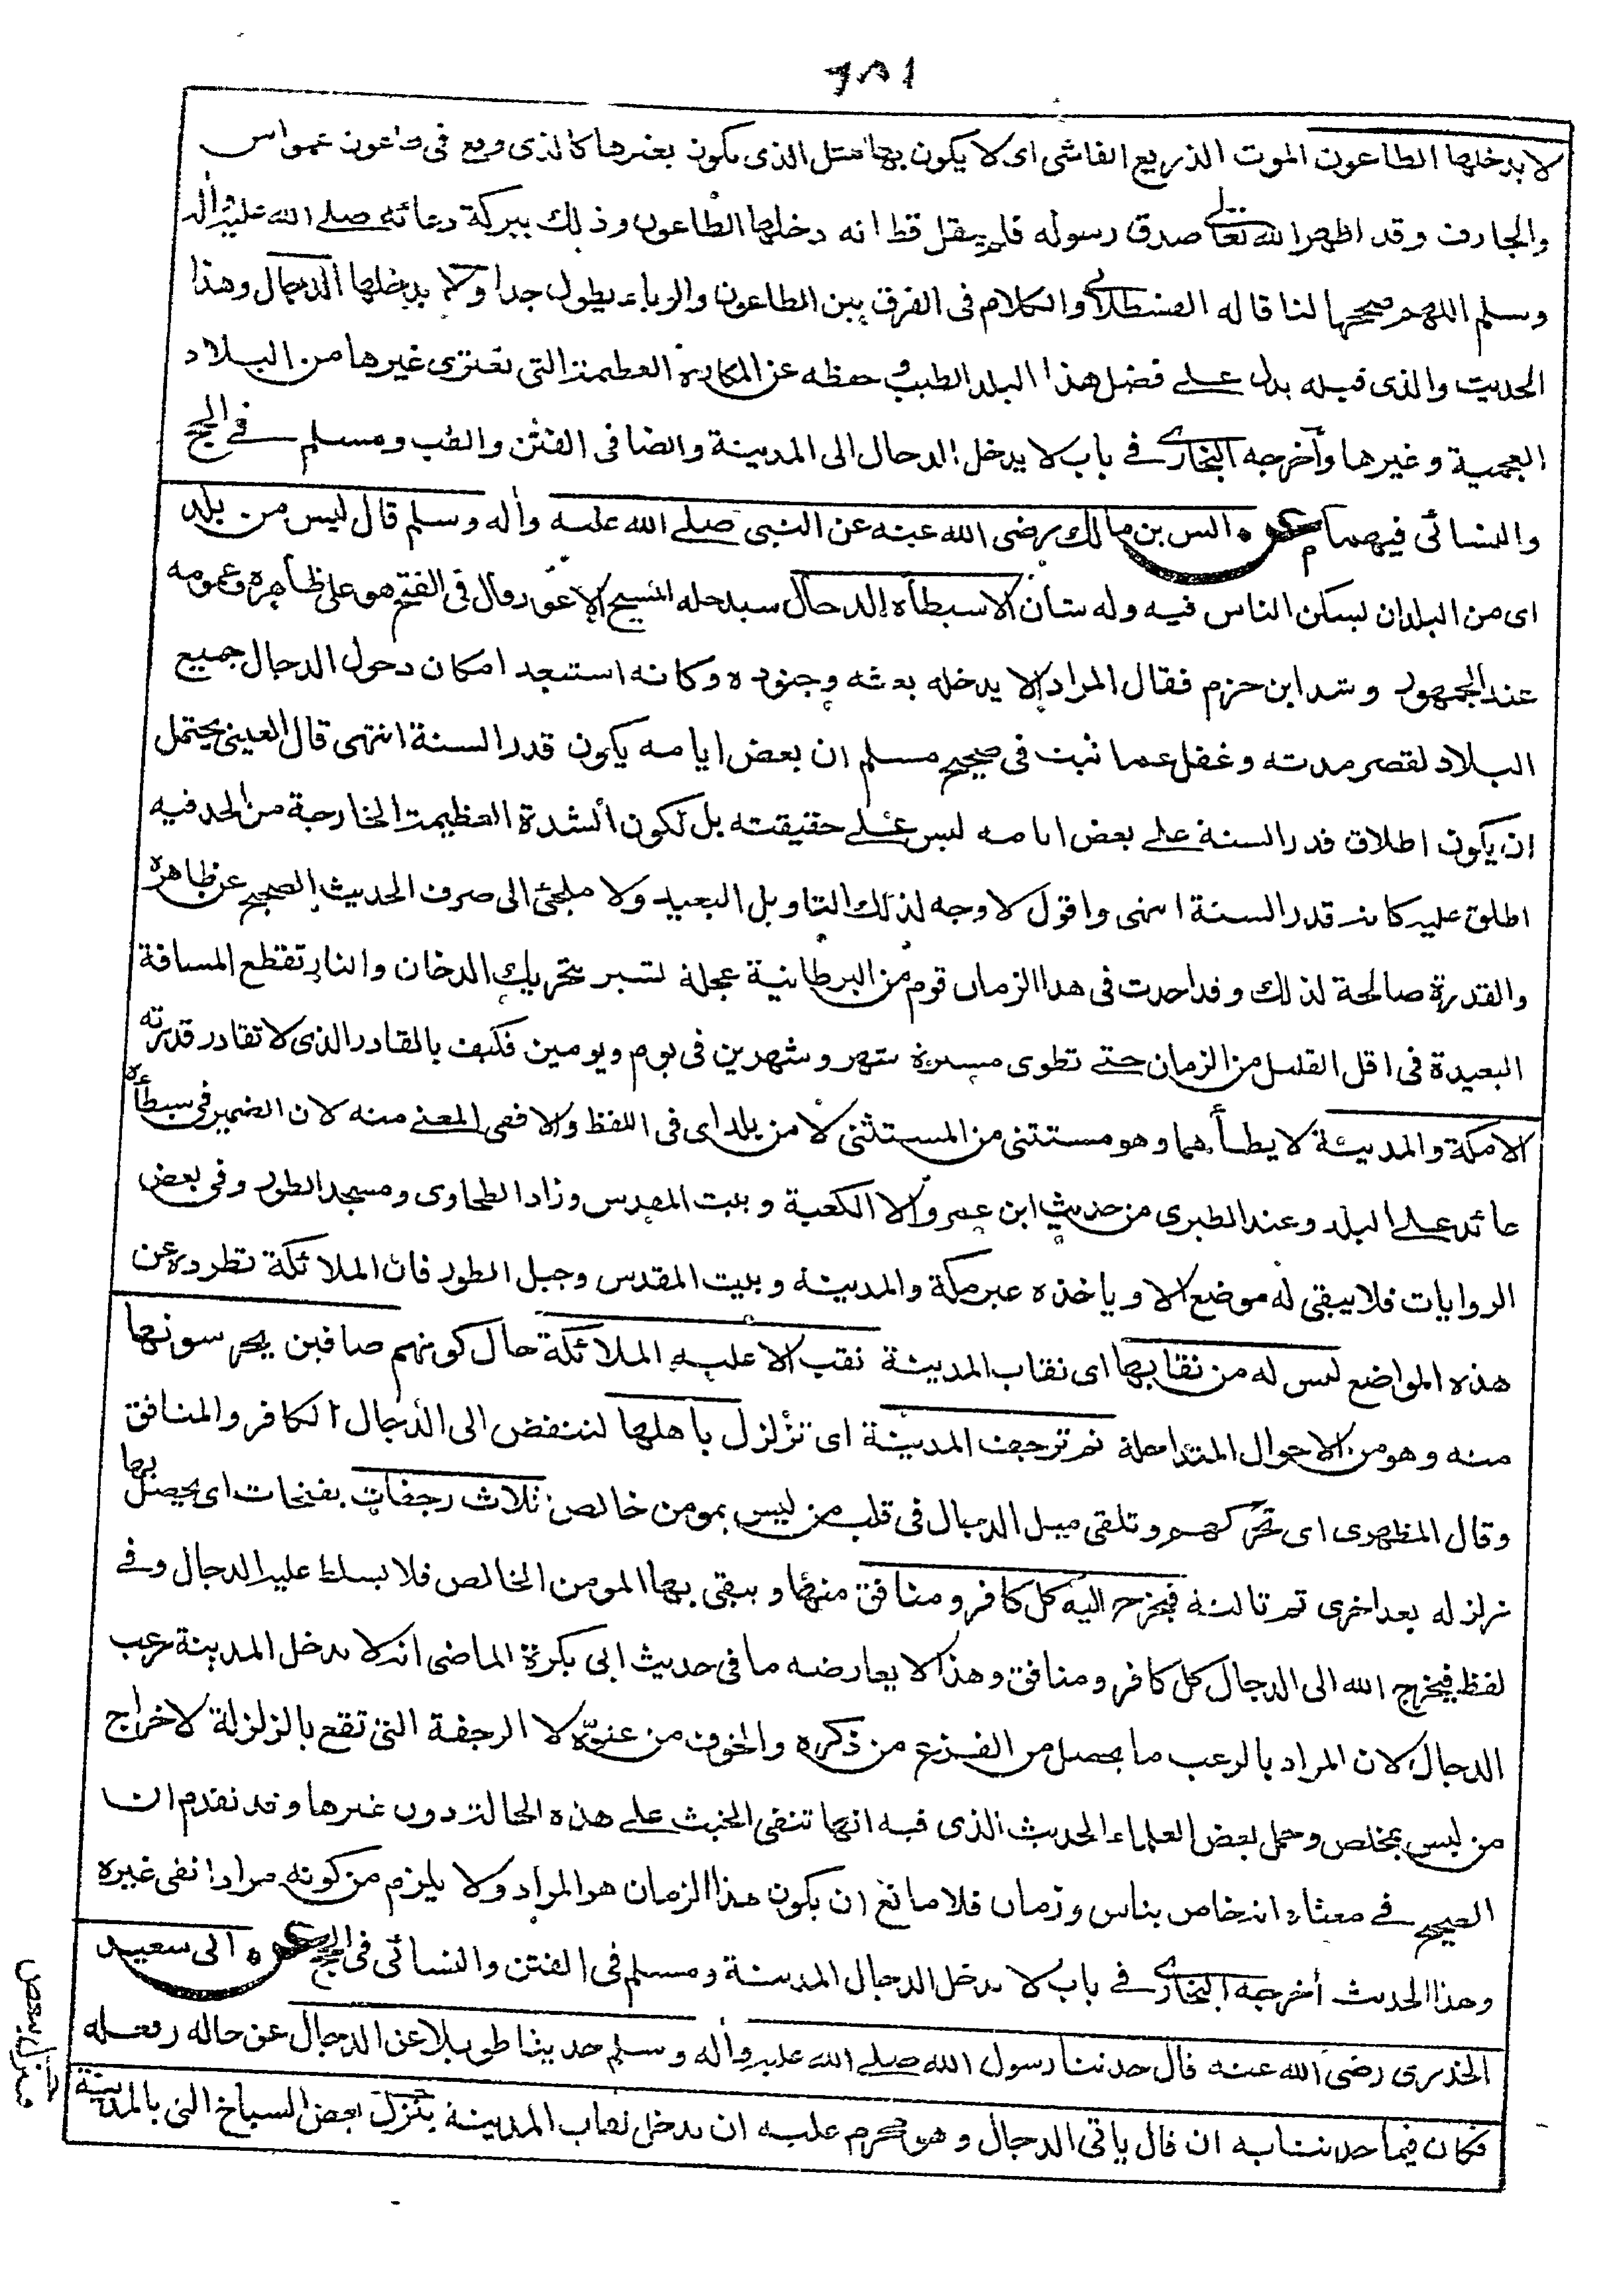 لا يدخلها الطاعون الموت الذريع الفاشى اى لا يكون بها مثل الذى يكون بغيرها كالذى وقع فى طاعون عمواس
والجارف وقد اظهر الله تعالى صدق رسوله فلم ينقل قط انه دخلها الطاعون وذلك ببركة دعائه صلے الله عليه وأله
وسلم اللهم صححها لنا قاله القسطلانى والكلام فى الفرق بين الطاعون والوباء يطول جدا ولا يدخلها الدجال وهذا
الحديث والذى قبله يدل علے فضل هذا البلد الطيب وحفظه عن المكاره العظيمة التى تعترى غيرها من البلاد
العجمية وغيرها وأخرجه البخارى فے باب لا يدخل الدجال الى المدينة وايضا فى الفتن والطب ومسلم فے الحج
والنسائى فيهما عن انس بن مالك رضى الله عنه عن النبى صلے الله عليه وأله وسلم قال ليس من بلد
اى من البلدان يسكن الناس فيه وله شأن الا سيطأه الدجال سيدخله المسيح الاعور وقال فى الفتح هو على ظاهره وعمومه
عند الجمهور وشذ ابن حزم فقال المراد الا يدخله بعثه وجنوده وكانه استبعد امكان دخول الدجال جميع
البلاد لقصر مدته وغفل عما ثبت فى صحيح مسلم ان بعض ايامه يكون قدر السنة انتهى قال العينى يحتمل
ان يكون اطلاق قدر السنة علے بعض ايامه ليس علے حقيقته بل لكون الشدة العظيمة الخارجة من الحد فيه
اطلق عليه كانه قدر السنة انتهى واقول لا وجه لذلك التاويل البعيد ولا ملجئ الى صرف الحديث الصحيح عن ظاهره
والقدرة صالحة لذلك وقد احدث فى هذا الزمان قوم من البرطانية عجلة تسير بتحريك الدخان والنار تقطع المسافة
البعيدة فى اقل القليل من الزمان حتے تطوى مسيرة شهر وشهرين فى يوم ويومين فكيف بالقادر الذى لا تقادر قدرته
الا مكة والمدينة لا يطأهما وهو مستثنى من المستثنى لا من بلد اى فى اللفظ والا ففى المعنے منه لان الضمير فى سيطأه
عائد علے البلد وعند الطبرى من حديث ابن عمرو الا الكعبة وبيت المقدس وزاد الطحاوى ومسجد الطور وفى بعض
الروايات فلا يبقى له موضع الا وياخذه غير مكة والمدينة وبيت المقدس وجبل الطور فان الملائكة تطرده عن
هذه المواضع ليس له من نقابها اى نقاب المدينة نقب الا عليه الملائكة حال كونهم صافين يحرسونها
منه وهو من الاحوال المتداخلة ثم ترجف المدينة اى تزلزل باهلها لتنفض الى الدجال الكافر والمنافق
وقال المظهرى اى تحركهم وتلقى ميل الدجال فى قلب من ليس بمومن خالص ثلاث رجفات بفتحات اى يحصل بها
زلزله بعد اخرى ثم ثالثة فيخرج اليه كل كافر ومنافق منها ويبقى بها المومن الخالص فلا يسلط عليه الدجال وفے
لفظ فيخرج الله الى الدجال كل كافر ومنافق وهذا لا يعارضه ما فى حديث ابى بكرة الماضى انه لا يدخل المدينة رعب
الدجال لان المراد بالرعب ما يحصل من الفزع من ذكره والخوف من عتوّه لا الرجفة التى تقع بالزلزلة لاخراج
من ليس بمخلص وحمل بعض العلماء الحديث الذى فيه انها تنفى الخبث علے هذه الحالة دون غيرها وقد تقدم ان
الصحيح فے معناه انه خاص بناس وزمان فلا مانع ان يكون هذا الزمان هو المراد ولا يلزم من كونه مرادا نفى غيره
وهذا الحديث أخرجه البخارى فے باب لا يدخل الدجال المدينة ومسلم فى الفتن والنسائى فى الحج عن ابى سعيد
الخدرى رضى الله عنه قال حدثنا رسول الله صلے الله عليه وأله وسلم حديثا طويلا عن الدجال عن حاله وفعله
فكان فيما حدثنا به ان قال ياتى الدجال وهو محرم عليه ان يدخل نقاب المدينة ينزل بعض السباخ التى بالمدينة
فينزل بعض